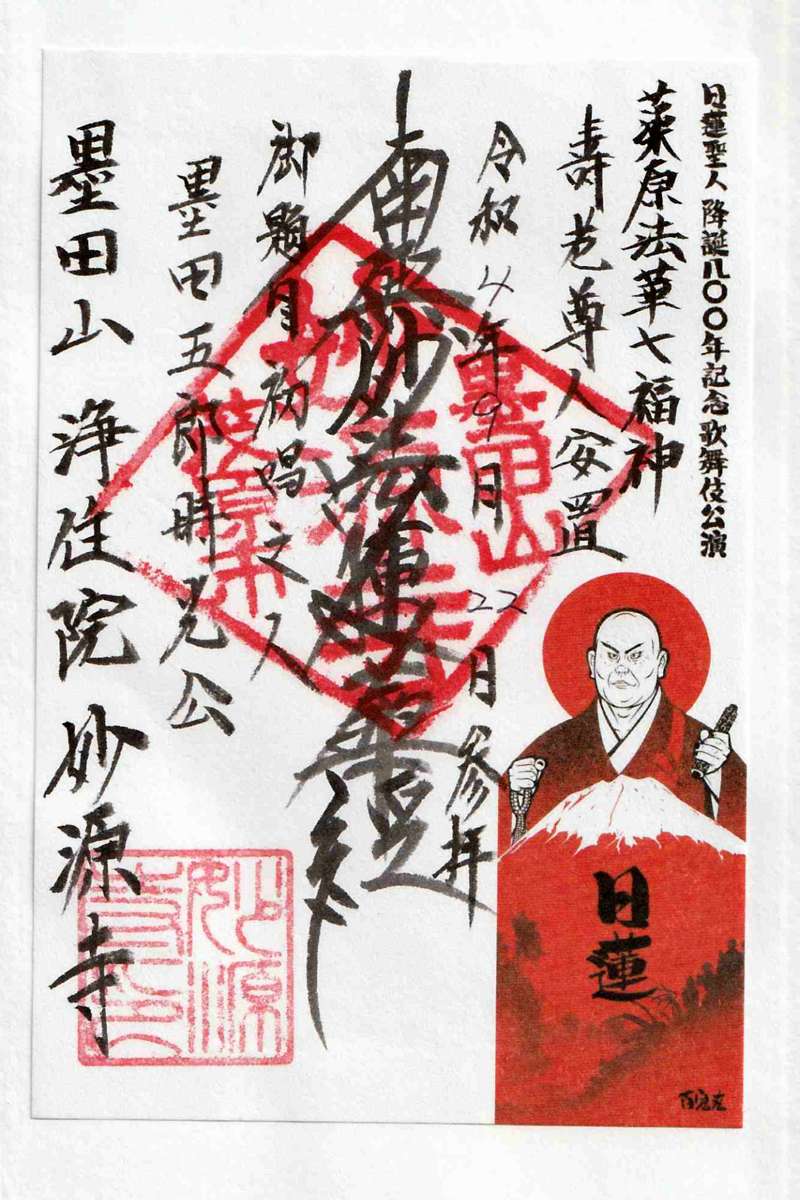 日蓮聖人 降誕八〇〇年記念歌舞伎公演
葉原法華七福神
寿老尊人安置
令和4年9月22日参拝
南無妙法蓮華経
御題目初唱之人
墨田五郎時光公
墨田山 浄住院 妙源寺
墨田山
妙源
日蓮